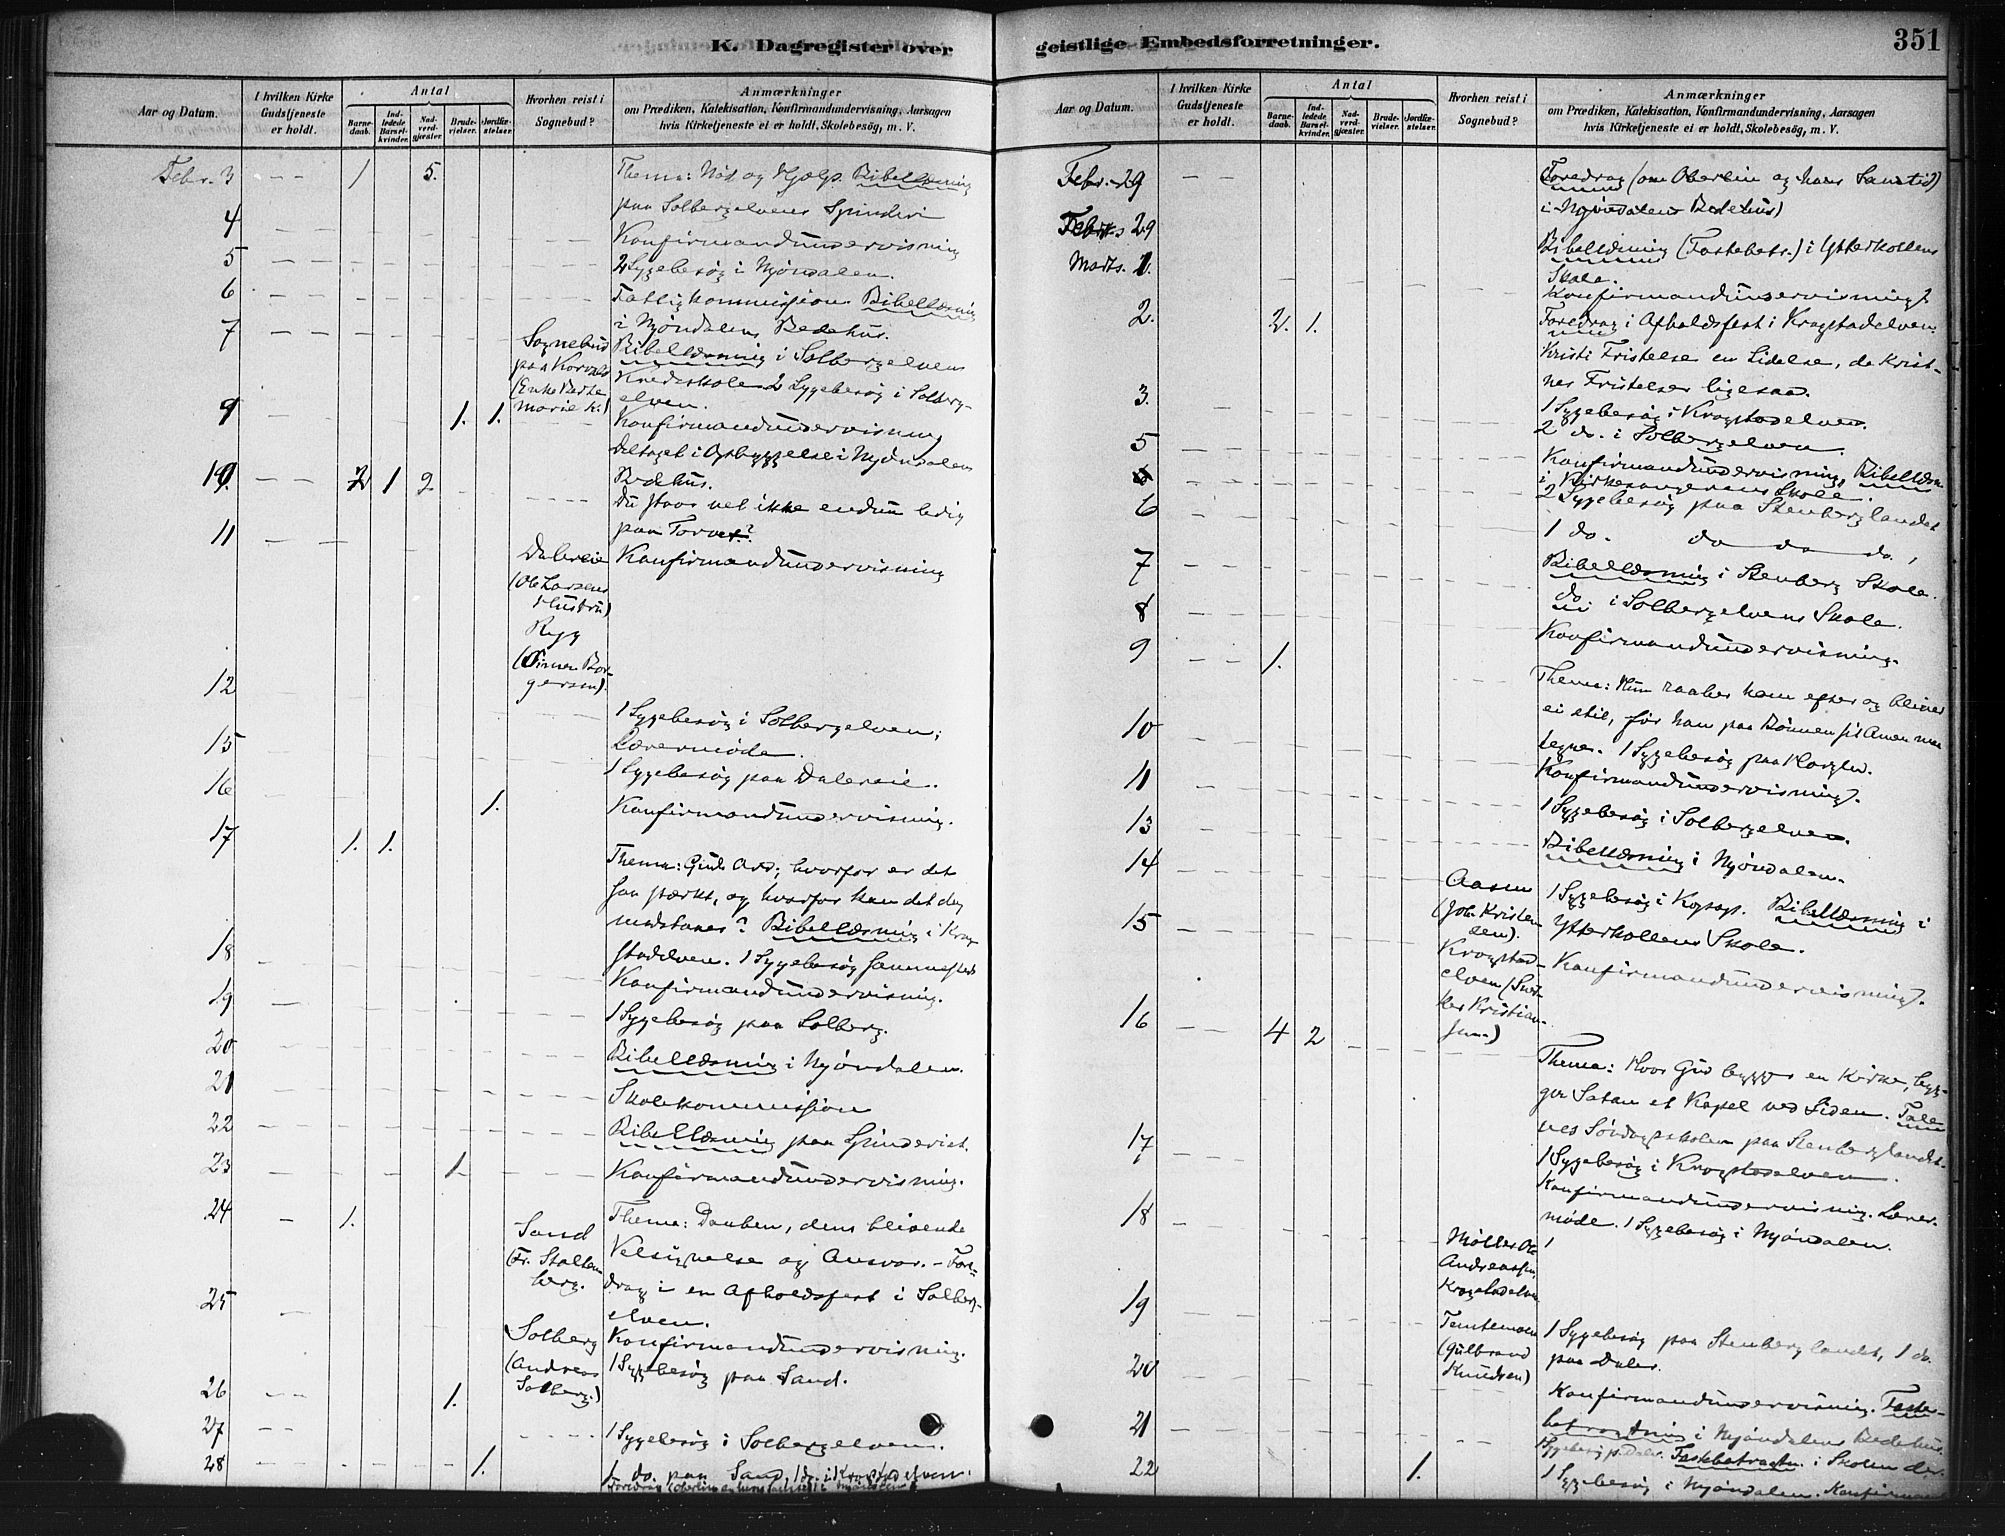 K. Dagregister over
Aar og Datum.
I hvilken Kirke Gudstjeneste er holdt.
Antal
Barnedaab.
Indledede Barselkvinder.
Nadverdgjæster.
Brudevielser.
Jordfæstelser.
Hvorhen reist i Sognebud?
Anmærkninger
om Prædiken, Katekisation, Konfirmandundervisning, Aarsagen
hvis Kirketjeneste ei er holdt, Skolebesög, m. V.
Febr. 3 1 5. Thema: Nød og Hjælp. Bibellæsning
paa Solbergelvens Spinderi
4 Konfirmandundervisning
5 2 Sygebesøg i Mjøndalen.
6 Fattigkommission. Bibellæsning
i Mjøndalens Bedehus.
7 Sognebud
Bibellæsning i Solbergelvens
Kredsskole 2 Sygebesøg i Solberg-
elven.
9 1. 1.
Konfirmandundervisning
Deltaget i Opbyggelse i Mjøndalens
Bedehus.
10. 2 1 9
Du staar vel ikke endnu ledig
paa Torvet?
11 Konfirmandundervisning
Dalereie
(Ole Larsens
Hustru)
Rygg
12
1 Sygebesøg i Solbergelven;
Lærermøde.
15 1 Sygebesøg paa Dalereie.
16 1. Konfirmandundervisning.
17 1. 1.
Thema: Guds Ord; hvorfor er det
saa stærkt, og hvorfor kan det dog
modstaaes? Bibellæsning i Krog-
stadelven. 1 Sygebesøg sammesteds
18 Konfirmandundervisning.
19 1 Sygebesøg paa Solberg.
20 Bibellæsning i Mjøndalen.
21 Skolekommission
22 Bibellæsning paa Spinderiet.
23 1 Konfirmandundervisning.
24 1. Thema: Daaben, dens blivende
Velsignelse og Ansvar. - Fore-
drag i en Afholdsfest i Solberg-
elven.
Sand
(Fr. Stolten-
berg.
25 Konfirmandundervisning.
1 Sygebesøg paa Sand.
Solberg
(Andreas
Solberg.)
26 1.
27 1 Sygebesøg i Solbergelven.
28 1. 1 do. paa Sand, 1 do. i Krogstadelven.
geistlige Embedsforretninger.
351
Aar og Datum.
I hvilken Kirke Gudstjeneste er holdt.
Antal
Barnedaab.
Indledede Barselkvinder.
Nadverdgjæster.
Brudevielser.
Jordfæstelser.
Hvorhen reist i Sognebud?
Anmærkninger
om Prædiken, Katekisation, Konfirmandundervisning, Aarsagen
hvis Kirketjeneste ei er holdt, Skolebesög, m. V.
Febr. 29 Foredrag (om Oberlin og hans Samtid)
i Mjøndalens Bedehus)
Febr. 29 Bibellæsning (Fastebetr.) i Ytterkollens
Skole.
Marts. 1. Konfirmandundervisning.
2. 2. 1. Foredrag i Afholdsfest i Krogstadelven.
Kristi Fristelse en Lidelse, de Krist-
nes Fristelser ligesaa.
3. 1 Sygebesøg i Krogstadelven.
2 do. i Solbergelven.
5 Konfirmandundervisning, Bibellæsn.
i Kirkesangerens Skole.
2 Sygebesøg paa Stenberglandet
6 1 do. do do do,
7 Bibellæsning i Stenberg Skole.
do i Solbergelvens Skole.
8 Konfirmandundervisning.
9 1.
Thema: Hun raaber ham efter og bliver
ei stil, før han paa Bønnen sit Amen maa
tegne. 1 Sygebesøg paa
10 Konfirmandundervisning.
11 1 Sygebesøg i Solbergelven.
13 Bibellæsning i Mjøndalen.
14 1 Sygebesøg i Kopsop. Bibellæsning i
Ytterkollens Skole.
Aasen
(Joh. Kristen-
sen).
15 Konfirmandundervisning.
Krogstad-
elven (Sned-
ker Kristian-
sen)
16 4 2
Thema: Hvor Gud bygger en Kirke, byg-
ger Satan et Kapel ved Siden. Tale
ved Søndagsskolen paa Stenberglandet.
17 1 Sygebesøg i Krogstadelven.
Konfirmandundervisning. Lærer-
møde. 1 Sygebesøg i Mjøndalen.
18
Møller Ole
Andreassen,
Krogstadelven
19 1 Sygebesøg paa Stenberglandet, 1 do.
paa Daler.
(Gulbrand
Knudsen)
20 Konfirmandundervisning. Faste-
betragtning i Mjøndalens Bedehus.
21 Fastebetragtn. i Skolen der.
22 1. 1 Sygebesøg i Mjøndalen. Konfirman